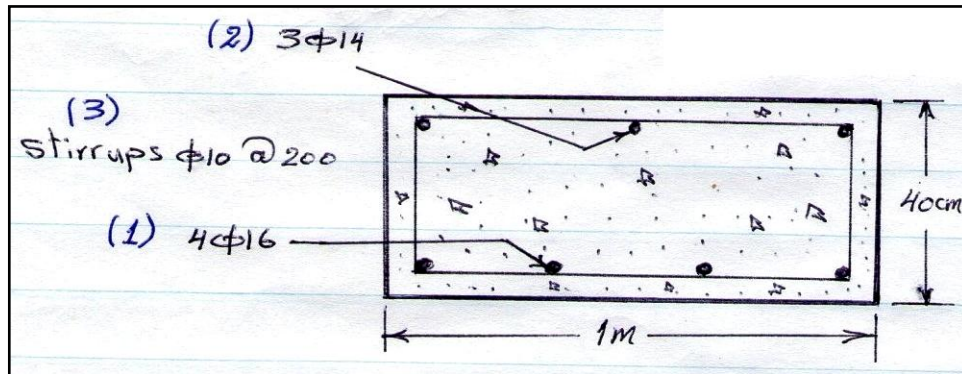 (2) 3ϕ14
(3)
Stirrups ϕ10 @ 200
(1) 4ϕ16
40cm
1m